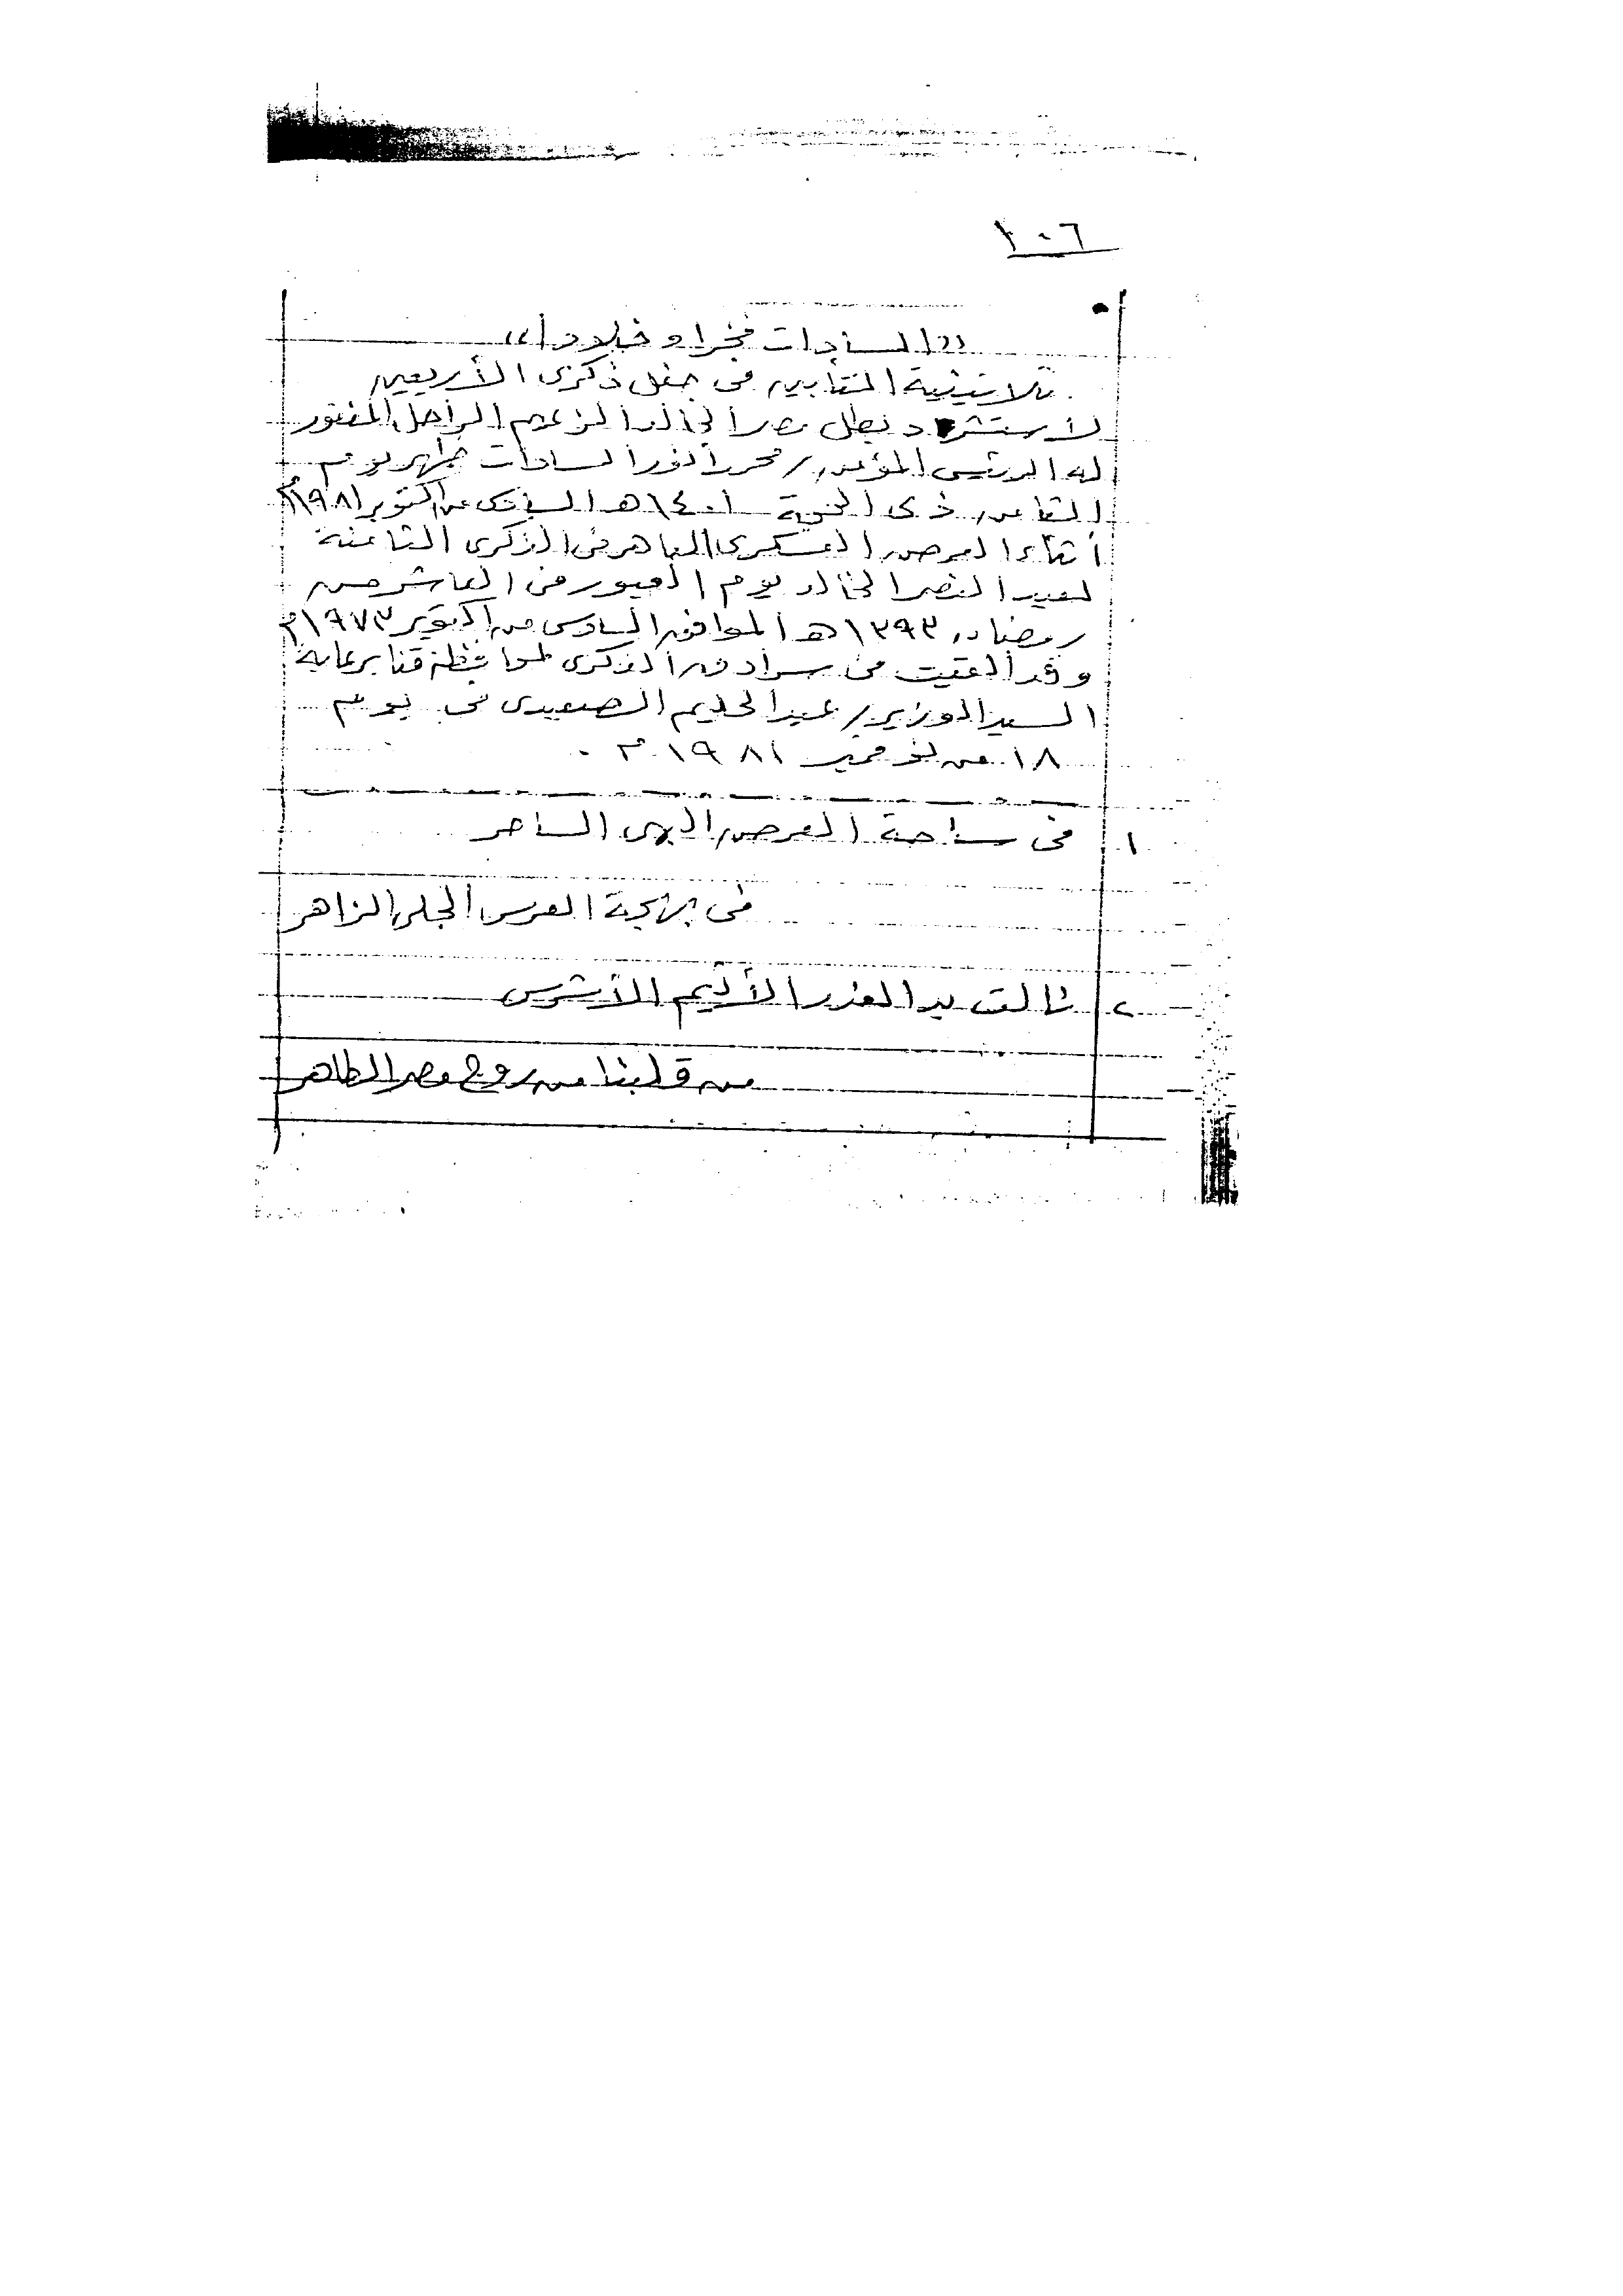 ١٠٦
((السادات فخرا وخلودا))
ثلاثينية التأبين فى حفل ذكرى الأربعين
لاستشهاد بطل مصر الخالد الزعيم الراحل المغفور
له الرئيس المؤمن / محمد أنور السادات ظهر يوم
الثامن ذى الحجة ١٤٠١هـ السادس من أكتوبر ١٩٨١م
أثناء العرض العسكرى الباهر فى الذكرى الثامنة
لعيد النصر الخالد يوم العبور فى العاشر من
رمضان ١٣٩٣هـ الموافق السادس من أكتوبر ١٩٧٣م
وقد ألقيت فى سرادق الذكرى لمحافظة قنا برعاية
السيد الوزير / عبد الحليم الصعيدى فى يوم
١٨ من نوفمبر ١٩٨١م .
١ فى ساحة العرض البهى الساحر
فى بهجة العرس الجلى الزاهر
٢ نالت يد الغدر الأثيم الأشرس
من قلبنا من روح مصر الطاهر